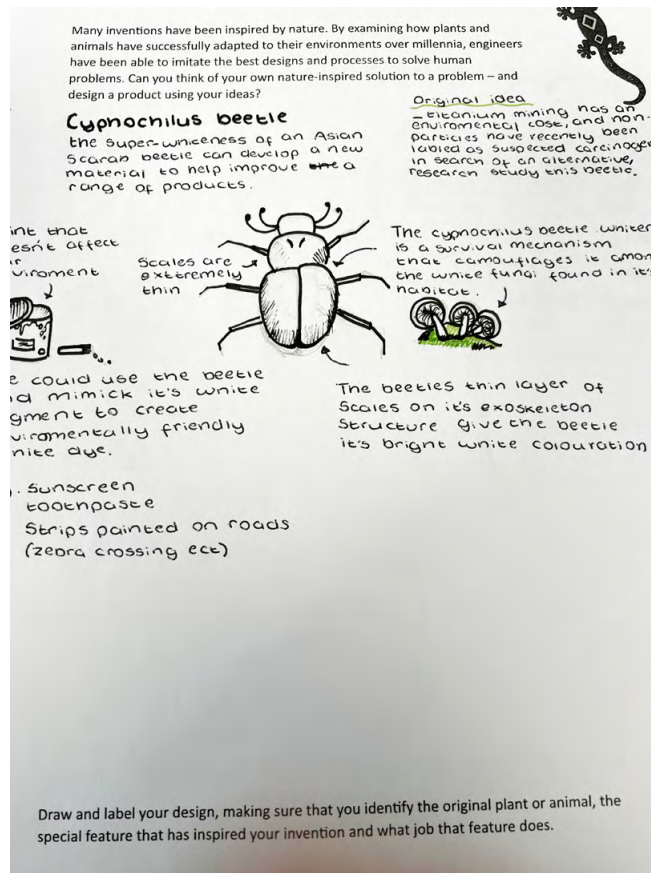 Many inventions have been inspired by nature. By examining how plants and
animals have successfully adapted to their environments over millennia, engineers
have been able to imitate the best designs and processes to solve human
problems. Can you think of your own nature-inspired solution to a problem – and
design a product using your ideas?
Cyphochilus beetle
the super-whiteness of an Asian
Scarab beetle can develop a new
material to help improve a
range of products.
Original idea
– titanium mining has an
enviromental cost, and non-
particles have recently been
labled as suspected carcinogen
in search of an alternative,
research study this beetle.
int that
esn't affect
r
viroment
Scales are
exttremely
thin
The cyphochilus beetle whiter
is a survival mechanism
that camouflages it amon
the white fungi found in it's
habitat.
e could use the beetle
d mimick it's white
gment to create
viromentally friendly
hite dye.
The beetles thin layer of
Scales on it's exoskeleton
Structure give the beetle
it's bright white colouration
. Sunscreen
toothpaste
Strips painted on roads
(zebra crossing ect)
Draw and label your design, making sure that you identify the original plant or animal, the
special feature that has inspired your invention and what job that feature does.